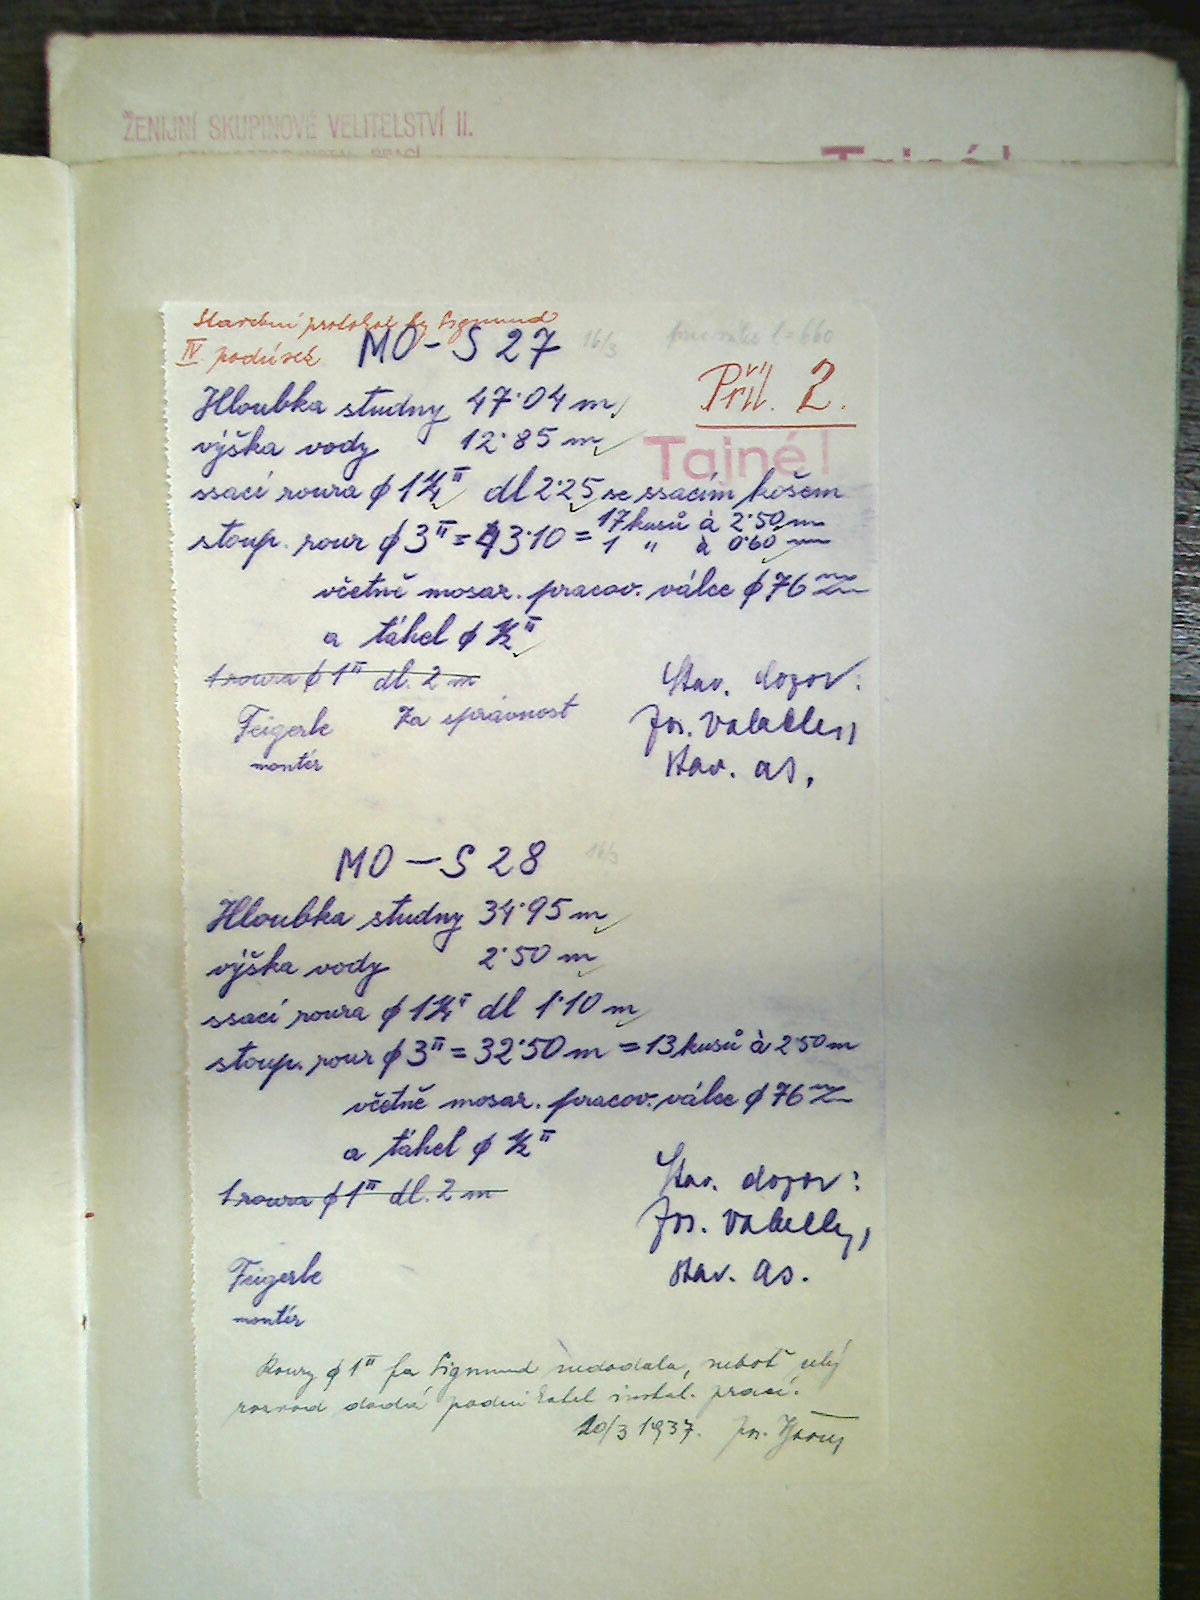 ŽENIJNÍ SKUPINOVÉ VELITELSTVÍ II.
Tajné!
Stavební protokol fy Sigmund
IV podúsek MO-S 27 16/3
l=660
Příl. 2.
Hloubka studny 47·04 m
výška vody 12·85 m
Tajné!
ssací roura ϕ 1¼" dl 2·25 se ssacím košem
stoup. rour ϕ 3" = 43·10 = 17 kusů à 2·50 m
1 " à 0·60 m
včetně mosaz. pracov. válce ϕ 76 m/m
a táhel ϕ ½"
1 roura ϕ 1" dl. 2 m
Stav. dozor:
Feigerle Za správnost
Jos.
montér
stav. as.
MO-S 28 16/3
Hloubka studny 34·95 m
výška vody 2·50 m
ssací roura ϕ 1¼" dl 1·10 m
stoup. rour ϕ 3" = 32·50 m = 13 kusů à 2·50 m
včetně mosaz. pracov. válce ϕ 76 m/m
a táhel ϕ ½"
Stav. dozor:
1 roura ϕ 1" dl. 2 m
Jos.
Feigerle
stav. as.
montér
Roury ϕ 1" fa Sigmund nedodala, neboť celý
rozvod dodá podnikatel instal. prací.
20/3 1937. Jos.